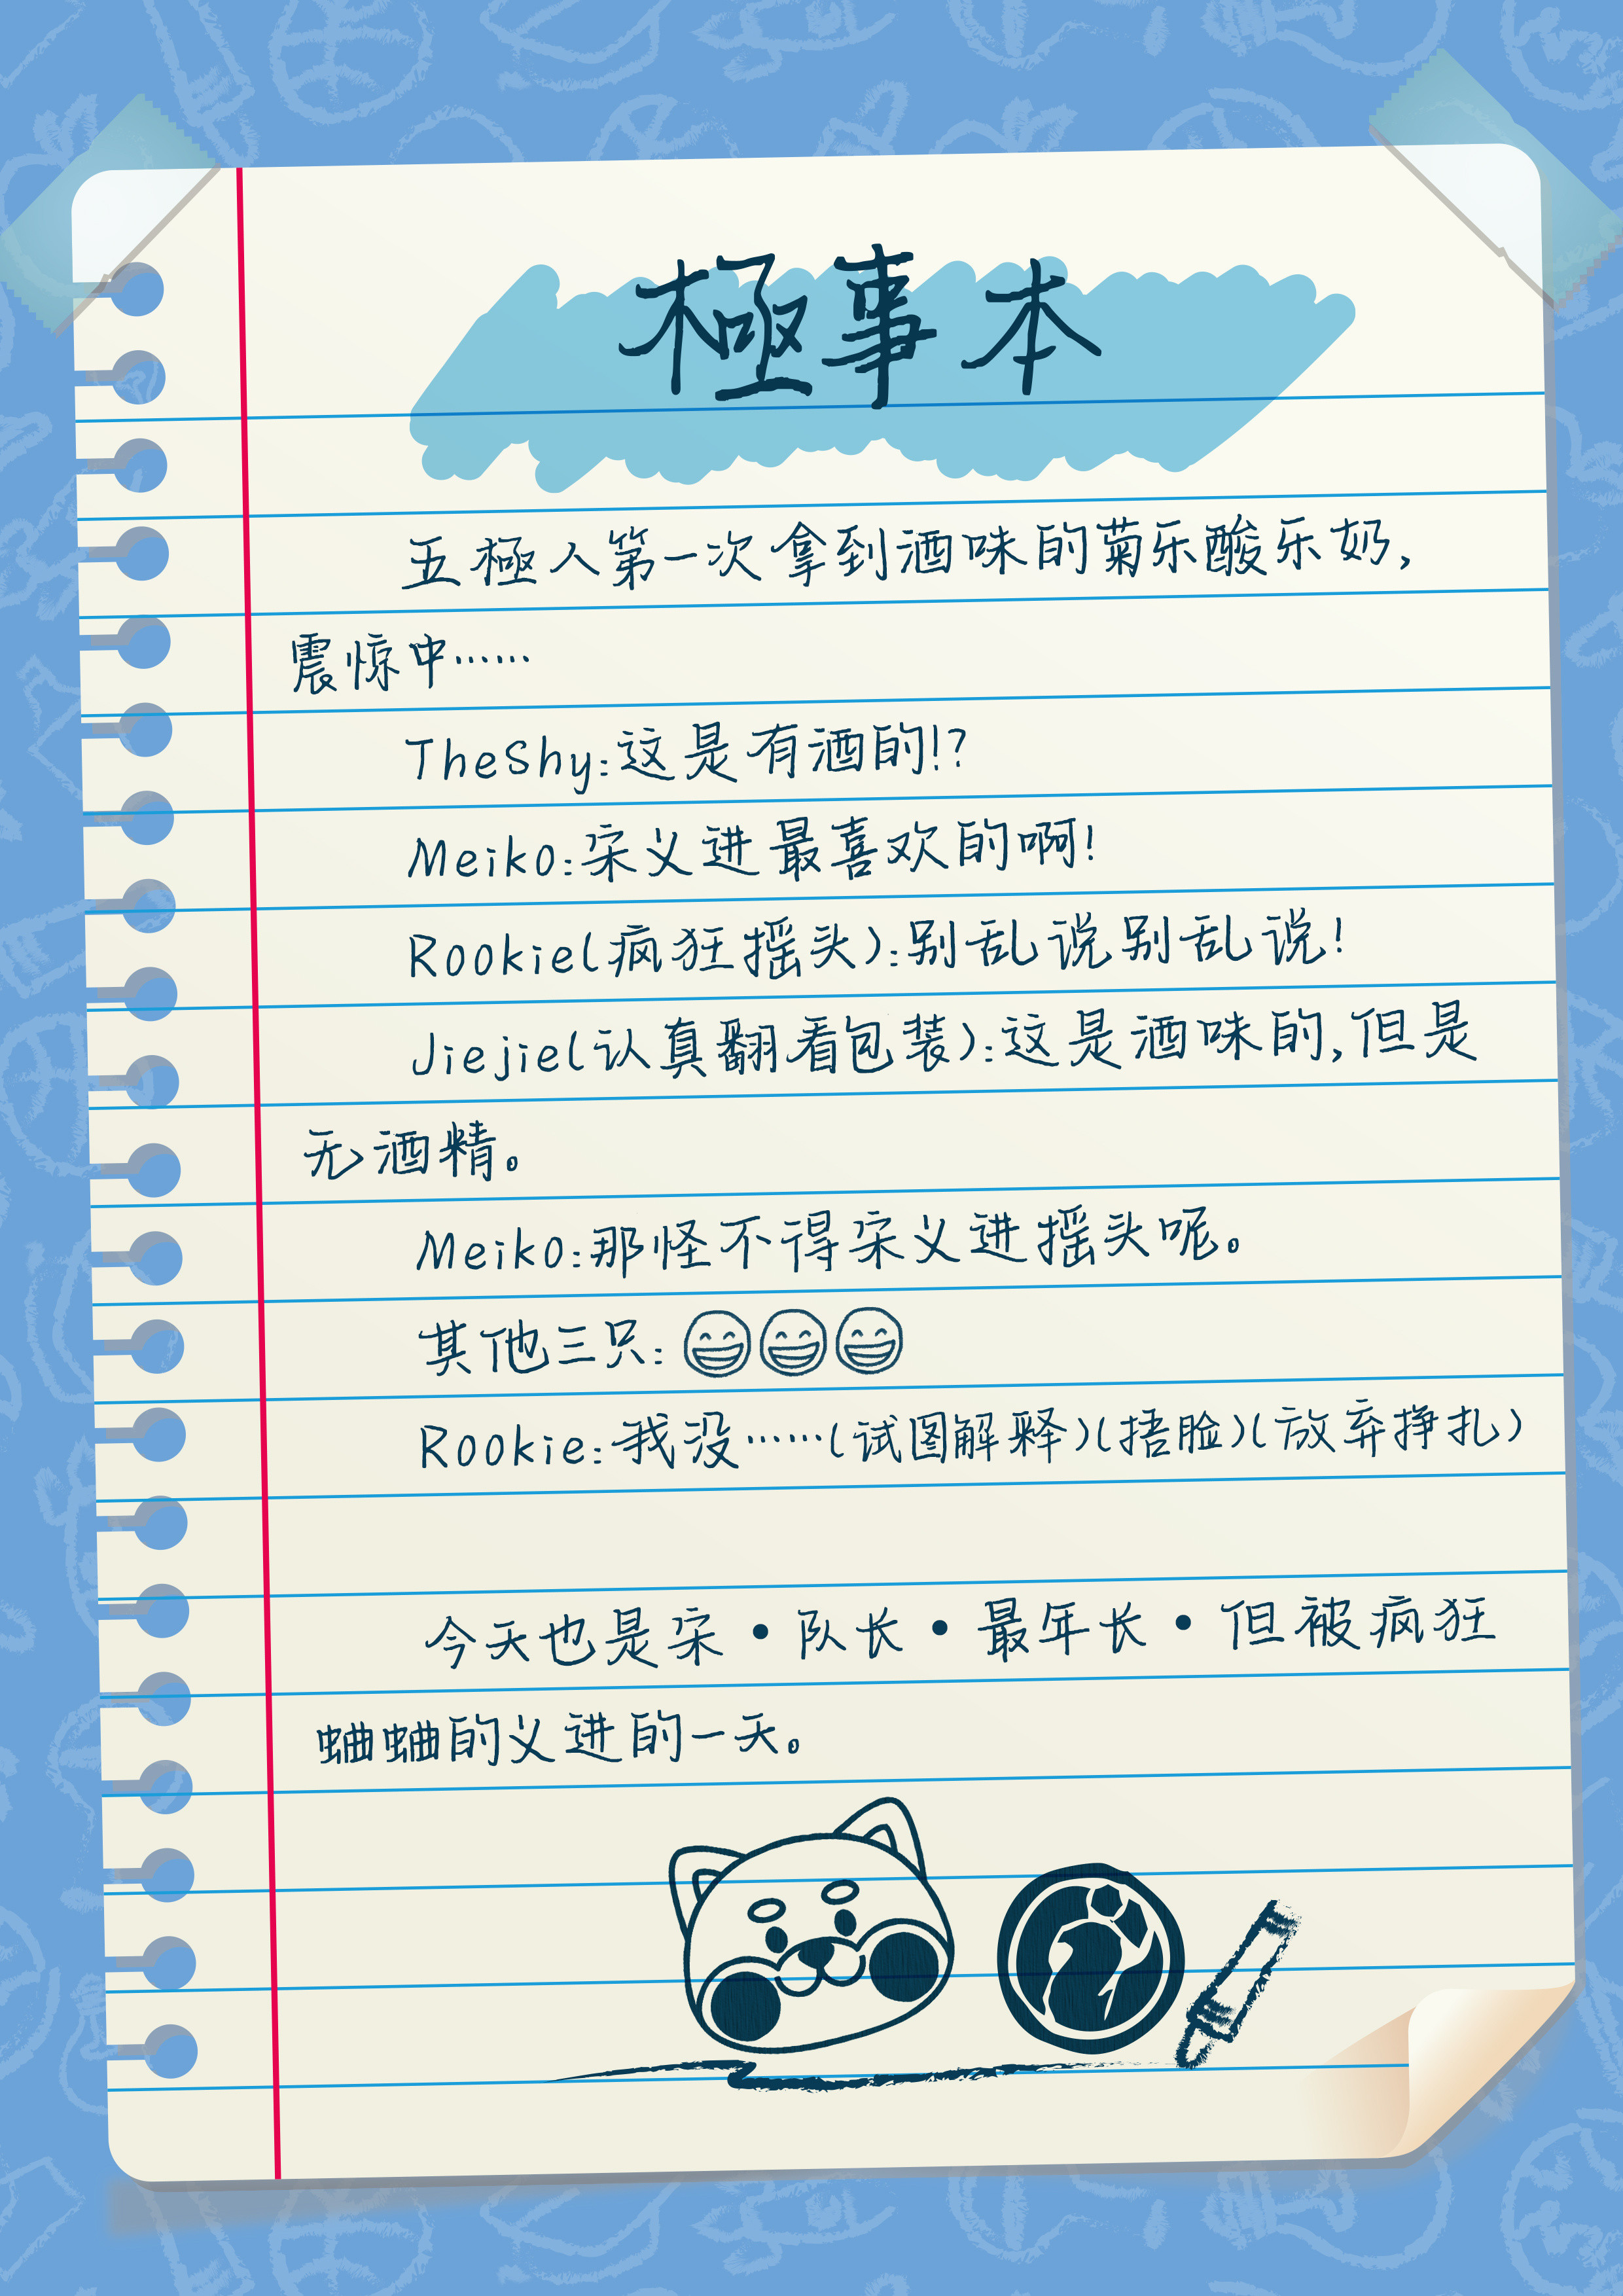 極事本
五極人第一次拿到酒味的菊乐酸乐奶，
震惊中……
TheShy：这是有酒的!?
Meiko：宋义进最喜欢的啊！
Rookie（疯狂摇头）：别乱说别乱说！
Jiejie（认真翻看包装）：这是酒味的，但是
无酒精。
Meiko：那怪不得宋义进摇头呢。
其他三只：😁😁😁
Rookie：我没……（试图解释）（捂脸）（放弃挣扎）
今天也是宋·队长·最年长·但被疯狂
蛐蛐的义进的一天。